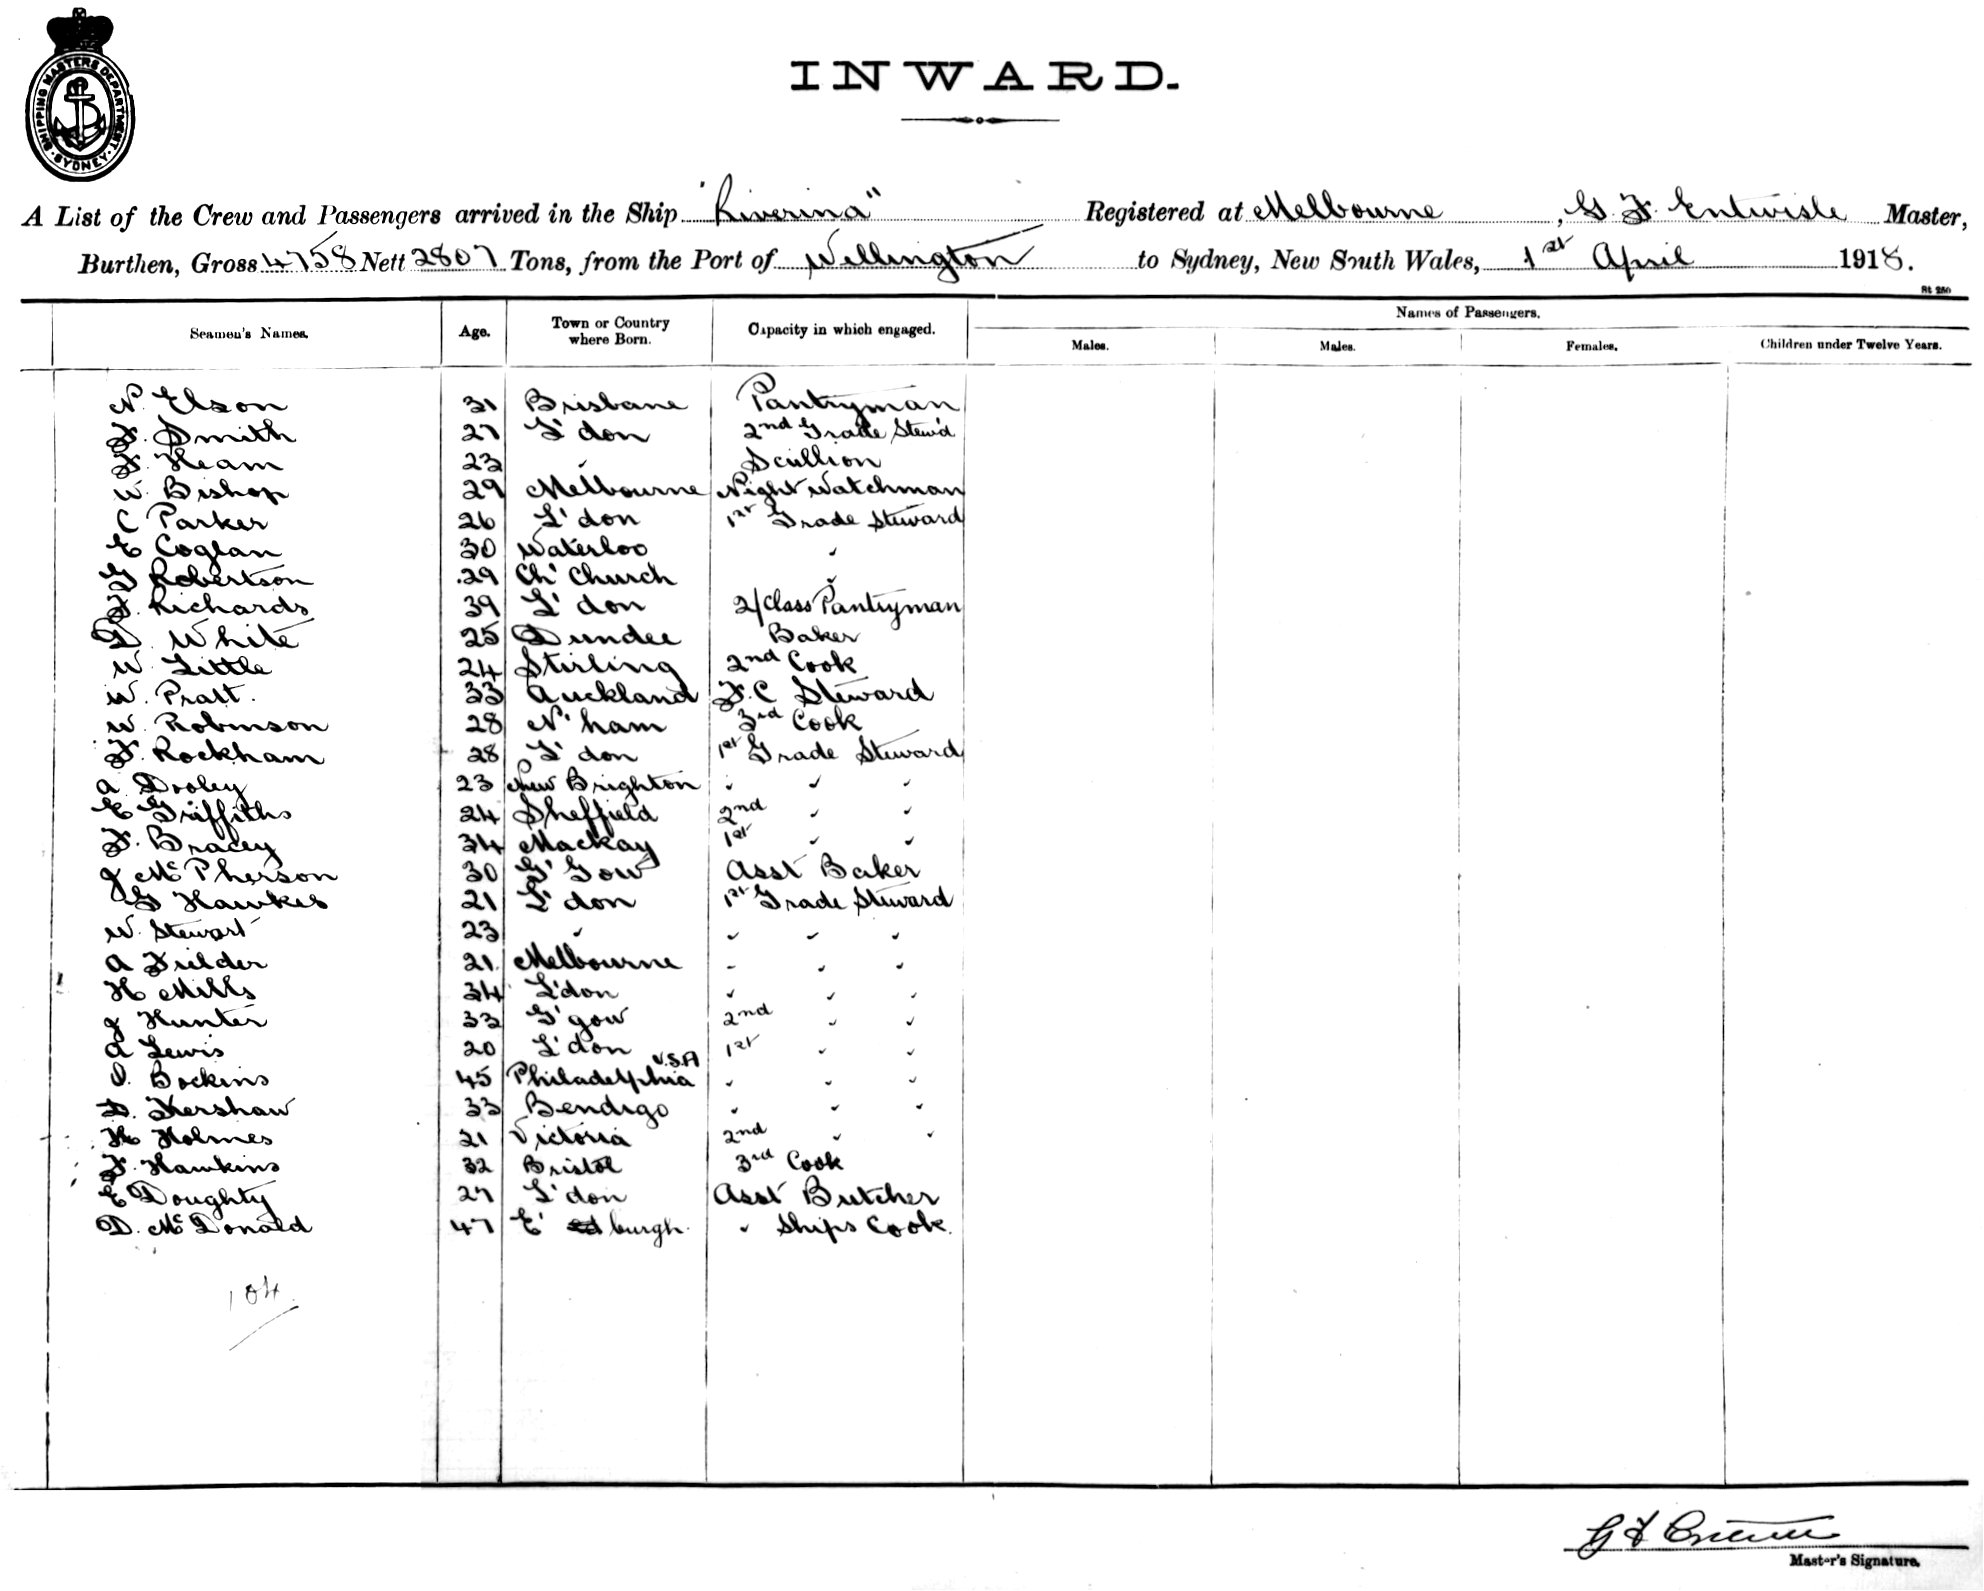 SHIPPING MASTERS DEPARTMENT
SYDNEY
INWARD.
A List of the Crew and Passengers arrived in the Ship "Riverina" Registered at Melbourne, G. F. Entwisle Master,
Burthen, Gross 4758 Nett 2807 Tons, from the Port of Wellington to Sydney, New South Wales, 1st April 1918.
St 250
Seamen's Names. Age. Town or Country where Born. Capacity in which engaged. Names of Passengers.
Males. Males. Females. Children under Twelve Years.
N. Elson 31 Brisbane Pantryman
F. Smith 27 L'don 2nd Grade Stew'd
F. Heam 23 " Scullion
W. Bishop 29 Melbourne Night Watchman
C Parker 26 L'don 1st Grade Steward
E Coglan 30 Waterloo "
G Robertson 29 Ch' Church "
F. Richards 39 L'don 2/Class Pantryman
D. White 25 Dundee Baker
W. Little 24 Stirling 2nd Cook
W. Pratt. 33 Auckland F.C Steward
W. Robinson 28 N'ham 3rd Cook
F. Rockham 28 L'don 1st Grade Steward
A Dooley 23 New Brighton " " "
E Griffiths 24 Sheffield 2nd " "
F. Bracey 34 Mackay 1st " "
J McPherson 30 G'Gow Asst Baker
G Hawkes 21 L'don 1st Grade Steward
W. Stewart 23 " " " "
A Fielder 21 Melbourne " " "
H Mills 34 L'don " " "
J Hunter 33 G'gow 2nd " "
A Lewis 20 L'don 1st " "
O. Bockins 45 Philadelphia U.S.A " " "
D. Kershaw 33 Bendigo " " "
H Holmes 21 Victoria 2nd " "
F. Hawkins 32 Bristol 3rd Cook
E Doughty 27 L'don Asst Butcher
D. McDonald 47 E'burgh. " Ships Cook.
104
G F Entwisle
Master's Signature.